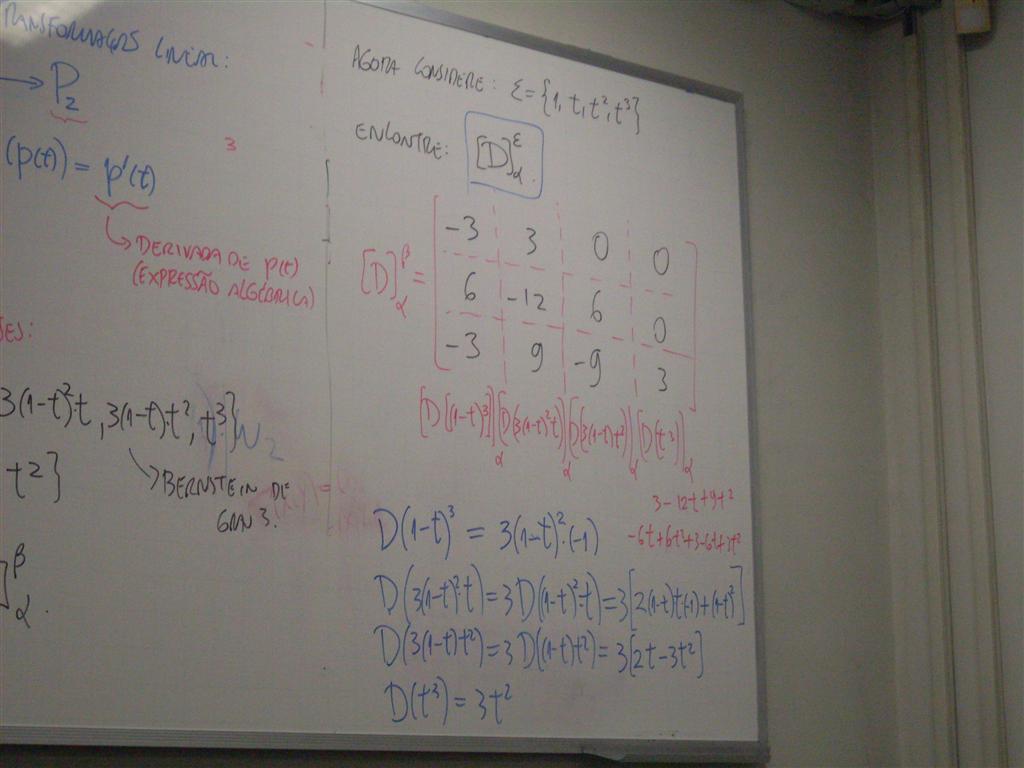 TRANSFORMAÇÃS LINEAR:
→ P₂
(p(t)) = p'(t)
3
DERIVADA DE p(t)
(EXPRESSÃO ALGÉBRICA)
3(1-t)²·t, 3(1-t)·t², t³}
t²}
BERNSTEIN DE
GRAU 3.
]^β_α.
AGORA CONSIDERE: ε = {1, t, t², t³}
ENCONTRE: [D]^ε_α.
[D]^β_α =
-3 3 0 0
6 -12 6 0
-3 9 -9 3
[D[(1-t)³]]_α [D(3(1-t)²t)]_α [D(3(1-t)t²)]_α [D(t³)]_α
3-12t+9t²
-6t+6t²+3-6t+3t²
D(1-t)³ = 3(1-t)²·(-1)
D(3(1-t)²·t) = 3D((1-t)²·t) = 3[2(1-t)t·(-1)+(1-t)²]
D(3(1-t)t²) = 3D((1-t)t²) = 3[2t-3t²]
D(t³) = 3t²